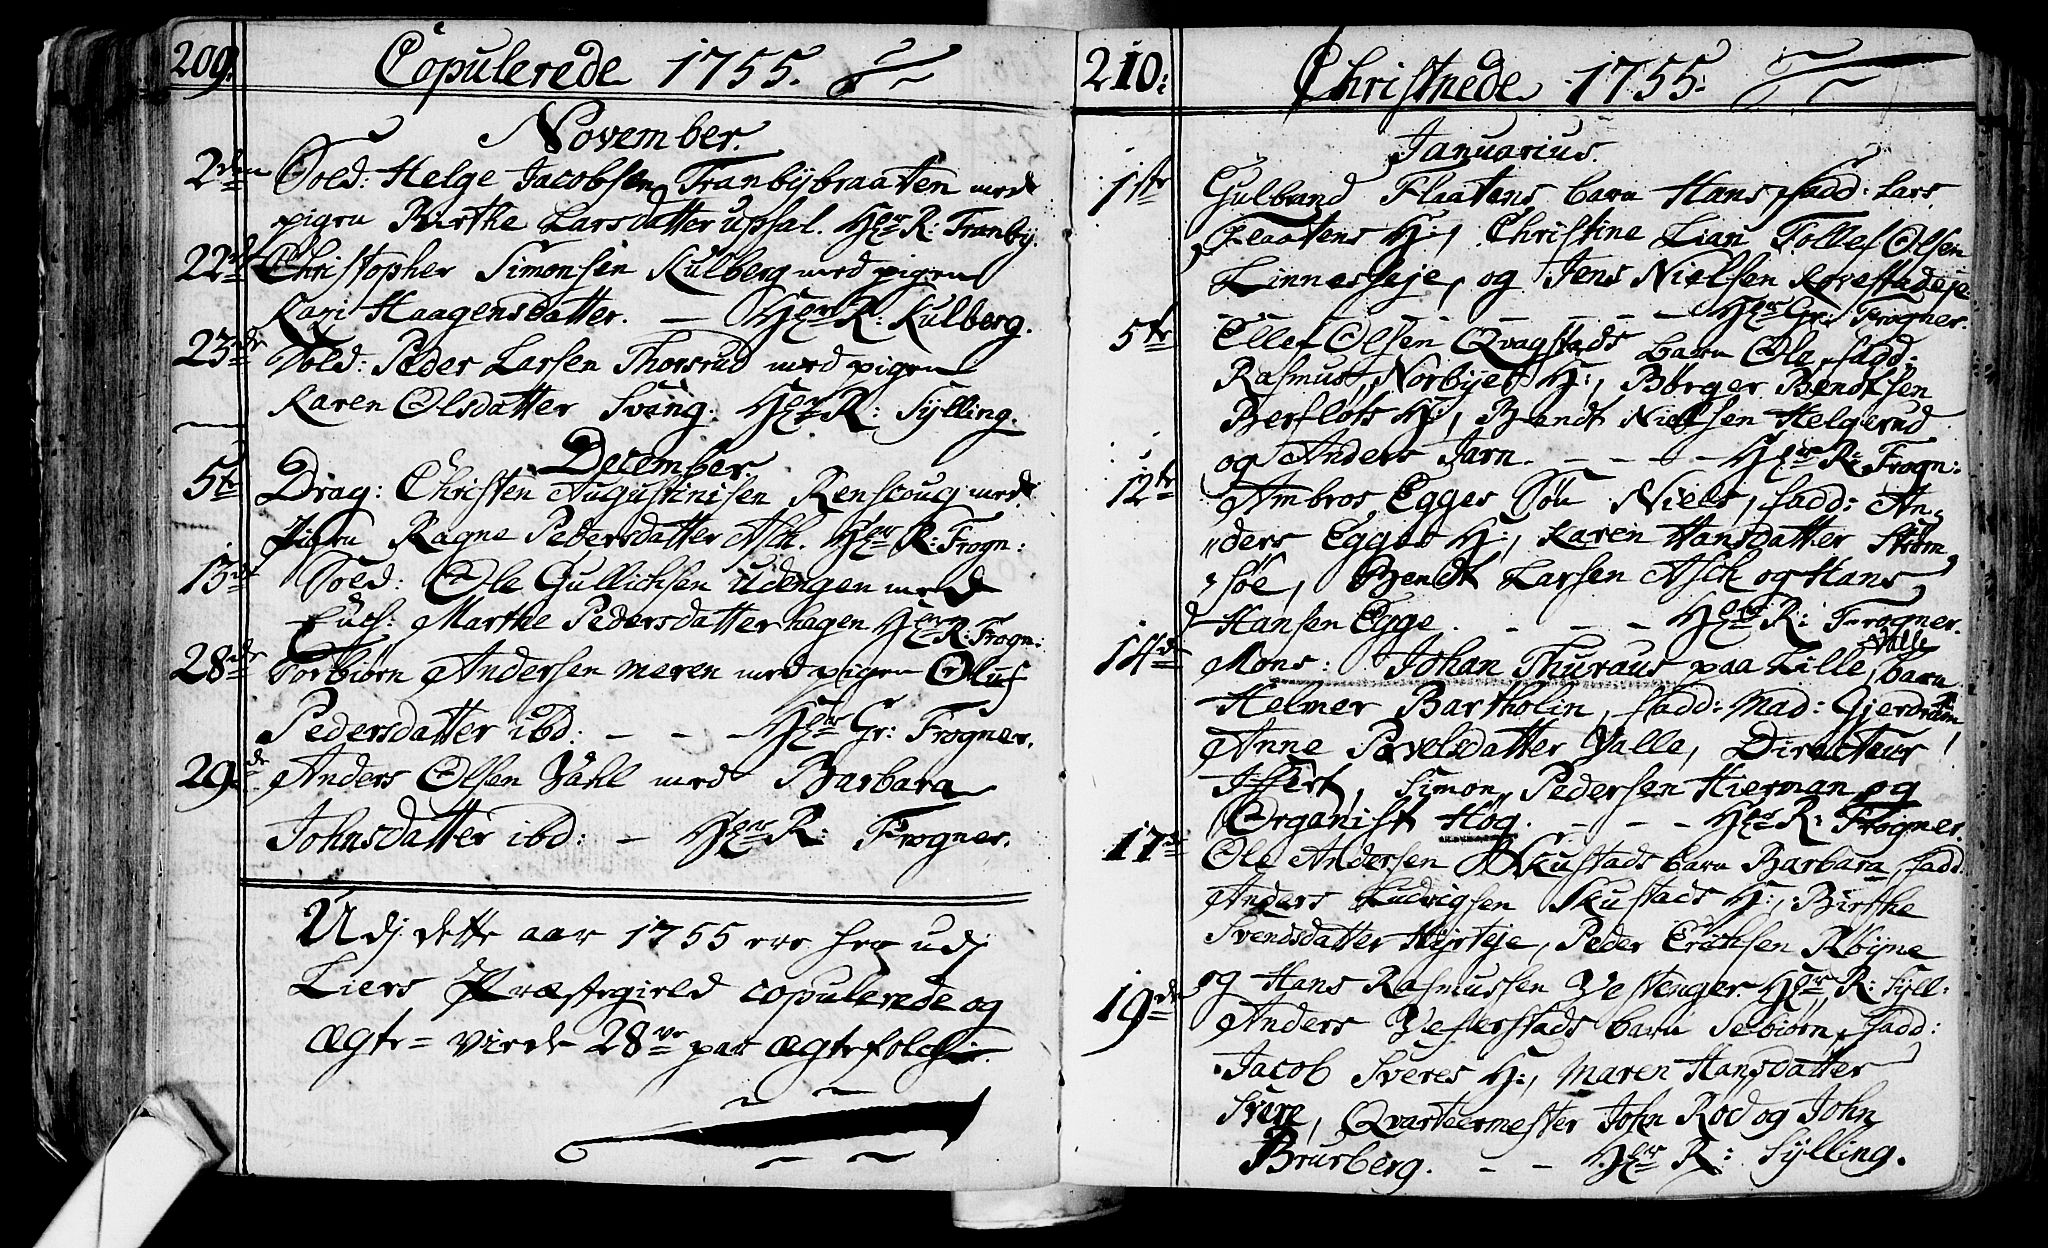 209.
Copulerede 1755.
November.
2den Sold: Helge Jacobsen Tranbybraaten med
pigen Birthe Larsdatter upsal. Hr R: Tranby.
22de Christopher Simonsen Kulberg med pigen
Kari Haagensdatter. — Hr R: Kulberg.
23de Sold: Peder Larsen Thorsrud med pigen
Karen Olsdatter Sveng. Hr R: Sylling.
December
5te Drag: Christen Augustinisen Renscoug med
pigen Ragne Pedersdatter Ask. Hr R: Frogn:
13de Sold: Ole Gullichsen Udengen med
Marthe Pedersdatter hagen Hr R: Frogn:
28de Torbiørn Andersen meren med pigen Oluf
Pedersdatter ibd: — — — Hr Gr: Frogner.
29de Anders Olsen Wahl med Barbara
Johnsdatter ibd: — Hr R: Frogner.
Udj dette aar 1755 ere her udj
Liers Præstegield copulerede og
Ægte= viede 28ve par Ægtefolck.
210:
Christnede 1755:
Januarius.
1ste Gulbrand Flaatens barn Hans, fadd: Lars
Flaatens H:, Christine Lian Tollef Olsen
Linneseje, og Jens Nielsen Røvestadeje
— — — — — — Hr Gr: Frogner.
5te Ellef Olsen Qvagstads barn Ola, fadd:
Rasmus Norbyes H:, Børger Bendtsen
Berfløts H:, Bendt Nielsen Helgerud
og Anders Jarn. — — — — Hr R: Frogn:
12te Ambros Egges Søn Niels, fadd: An„
„ders Egges H:, Karen Hansdatter Strøm„
„søe, Bendt Larsen Ask og Hans
Hansen Egge. — — — Hr R: Frogner.
14de Mons: Johan Thuraus paa Lille Valle, barn
Helmer Bartholin, fadd: Mad: Gjerdrum
Anne Povelsdatter Valle, Directeur
Iffert, Simon Pedersen Hierman og
Organist Høg. — — — Hr R: Frogner.
17de Ole Andersen Skustads barn Barbara, fadd:
Anders Ludvigsen Skustads H:, Birthe
Svendsdatter Hyrteje, Peder Erichsen Røyne
og Hans Rasmussen Vestenger. Hr R: Syll:
19de Anders Vefferstads barn Sebiørn, fadd:
Jacob Sveres H:, Maren Hansdatter
Svere, Qvarteermester John Rod og John
Brurberg. — — Hr R: Sylling.